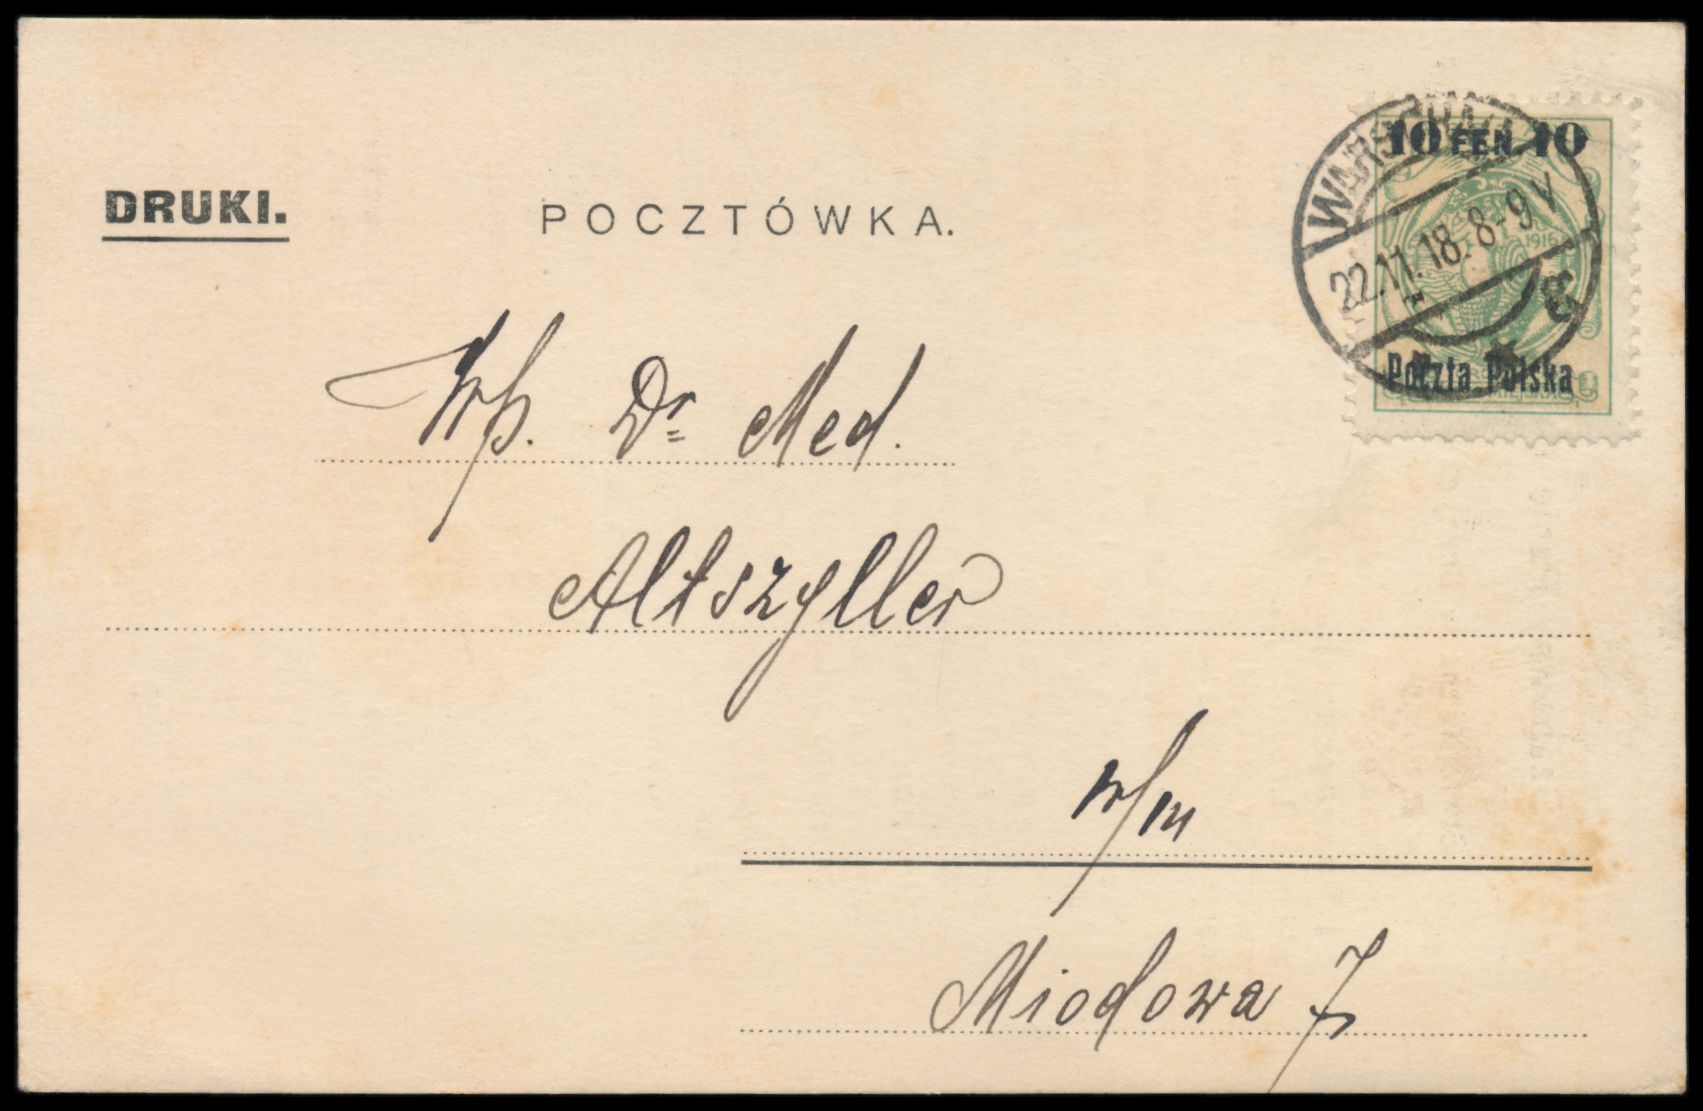 10 FEN. 10
WARSCHAU
1916
22.11.18. 8-9 V
Poczta Polska
DRUKI.
POCZTÓWKA.
Wp. Dr Med.
Altszyller
w/m
Miodowa 7